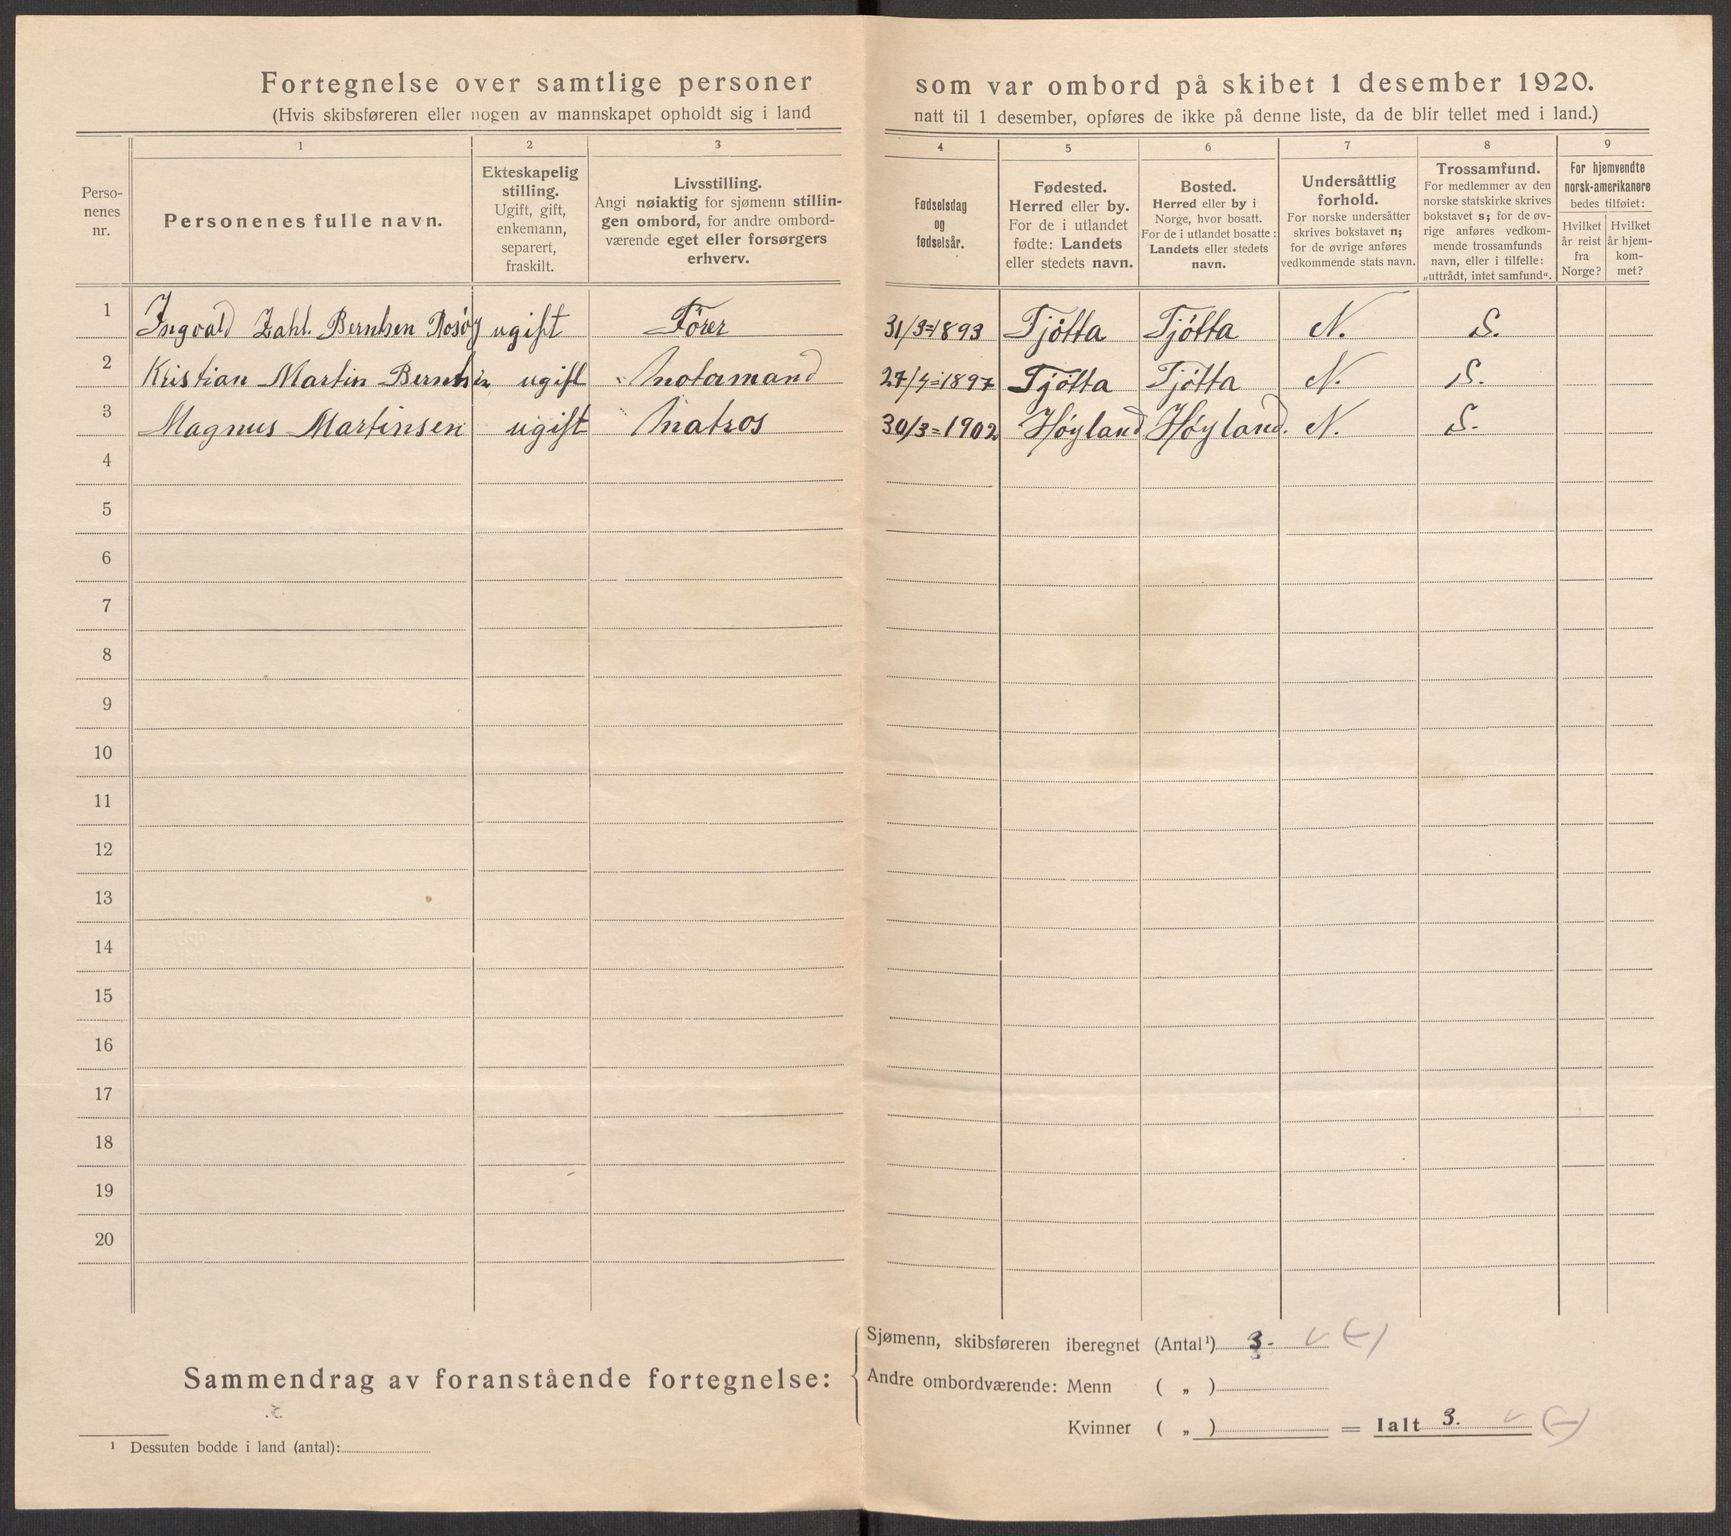 Fortegnelse over samtlige personer som var ombord på skibet 1 desember 1920.
(Hvis skibsføreren eller nogen av mannskapet opholdt sig i land natt til 1 desember, opføres de ikke på denne liste, da de blir tellet med i land.)
Perso-
nenes
nr.
1
Personenes fulle navn.
2
Ekteskapelig
stilling.
Ugift, gift,
enkemann,
separert,
fraskilt.
3
Livsstilling.
Angi nøiaktig for sjømenn stillin-
gen ombord, for andre ombord-
værende eget eller forsørgers
erhverv.
4
Fødselsdag
og
fødselsår.
5
Fødested.
Herred eller by.
For de i utlandet
fødte: Landets
eller stedets navn.
6
Bosted.
Herred eller by i
Norge, hvor bosatt.
For de i utlandet bosatte:
Landets eller stedets
navn.
7
Undersåttlig
forhold.
For norske undersåtter
skrives bokstavet n;
for de øvrige anføres
vedkommende stats navn.
8
Trossamfund.
For medlemmer av den
norske statskirke skrives
bokstavet s; for de øv-
rige anføres vedkom-
mende trossamfunds
navn, eller i tilfelle:
„uttrådt, intet samfund“.
9
For hjemvendte
norsk-amerikanere
bedes tilføiet:
Hvilket
år reist
fra
Norge?
Hvilket
år hjem-
kom-
met?
1 Ingvald Zahl. Berntsen Rosøy ugift Förer 31/3=1893 Tjötta Tjötta N. S.
2 Kristian Martin Berntsen ugift Motormand 27/4=1897 Tjötta Tjötta N. S.
3 Magnus Martinsen ugift Matros 30/3=1902 Høyland Høyland. N. S.
4
5
6
7
8
9
10
11
12
13
14
15
16
17
18
19
20
Sammendrag av foranstående fortegnelse:
Sjømenn, skibsføreren iberegnet (Antal¹) 3.
Andre ombordværende: Menn ( „ )
Kvinner ( „ ) = Ialt 3.
¹ Dessuten bodde i land (antal):